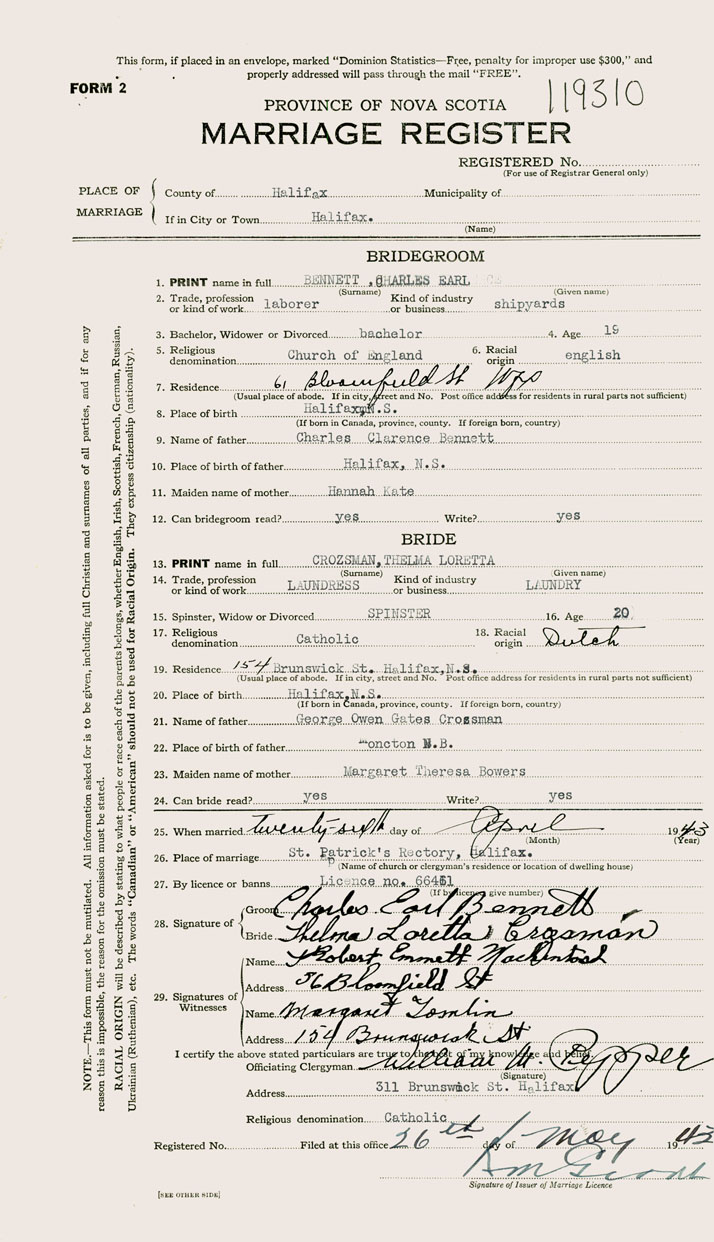 This form, if placed in an envelope, marked "Dominion Statistics—Free, penalty for improper use $300," and
properly addressed will pass through the mail "FREE".
FORM 2
119310
PROVINCE OF NOVA SCOTIA
MARRIAGE REGISTER
REGISTERED No.
(For use of Registrar General only)
PLACE OF MARRIAGE
County of Halifax Municipality of
If in City or Town Halifax.
(Name)
BRIDEGROOM
1. PRINT name in full BENNETT ,CHARLES EARL
(Surname) (Given name)
2. Trade, profession or kind of work laborer Kind of industry or business shipyards
3. Bachelor, Widower or Divorced bachelor 4. Age 19
5. Religious denomination Church of England 6. Racial origin english
7. Residence 61 Bloomfield St Hfx
(Usual place of abode. If in city, street and No. Post office address for residents in rural parts not sufficient)
8. Place of birth Halifax, N.S.
(If born in Canada, province, county. If foreign born, country)
9. Name of father Charles Clarence Bennett
10. Place of birth of father Halifax, N.S.
11. Maiden name of mother Hannah Kate
12. Can bridegroom read? yes Write? yes
BRIDE
13. PRINT name in full CROZSMAN, THELMA LORETTA
(Surname) (Given name)
14. Trade, profession or kind of work LAUNDRESS Kind of industry or business LAUNDRY
15. Spinster, Widow or Divorced SPINSTER 16. Age 20
17. Religious denomination Catholic 18. Racial origin Dutch
19. Residence 154 Brunswick St. Halifax,N.S.
(Usual place of abode. If in city, street and No. Post office address for residents in rural parts not sufficient)
20. Place of birth Halifax,N.S.
(If born in Canada, province, county. If foreign born, country)
21. Name of father George Owen Gates Crossman
22. Place of birth of father Moncton N.B.
23. Maiden name of mother Margaret Theresa Bowers
24. Can bride read? yes Write? yes
25. When married twenty-sixth day of April 1943
(Month) (Year)
26. Place of marriage St. Patrick's Rectory, Halifax.
(Name of church or clergyman's residence or location of dwelling house)
27. By licence or banns Licence no.
(If by licence, give number)
28. Signature of
Groom Charles Earl Bennett
Bride Thelma Loretta Crosman
29. Signatures of Witnesses
Name Robert Emmett MacKintosh
Address 56 Bloomfield St
Name Margaret Tomlin
Address 154 Brunswick St
I certify the above stated particulars are true to the best of my knowledge and belief.
Officiating Clergyman William M. Pepper
(Signature)
Address 311 Brunswick St. Halifax
Religious denomination Catholic
Registered No. Filed at this office 26th day of May 1943
Signature of Issuer of Marriage Licence
[SEE OTHER SIDE]
NOTE.—This form must not be mutilated. All information asked for is to be given, including full Christian and surnames of all parties, and if for any
reason this is impossible, the reason for the omission must be stated.
RACIAL ORIGIN will be described by stating to what people or race each of the parents belongs, whether English, Irish, Scottish, French, German, Russian,
Ukrainian (Ruthenian), etc. The words "Canadian" or "American" should not be used for Racial Origin. They express citizenship (nationality).